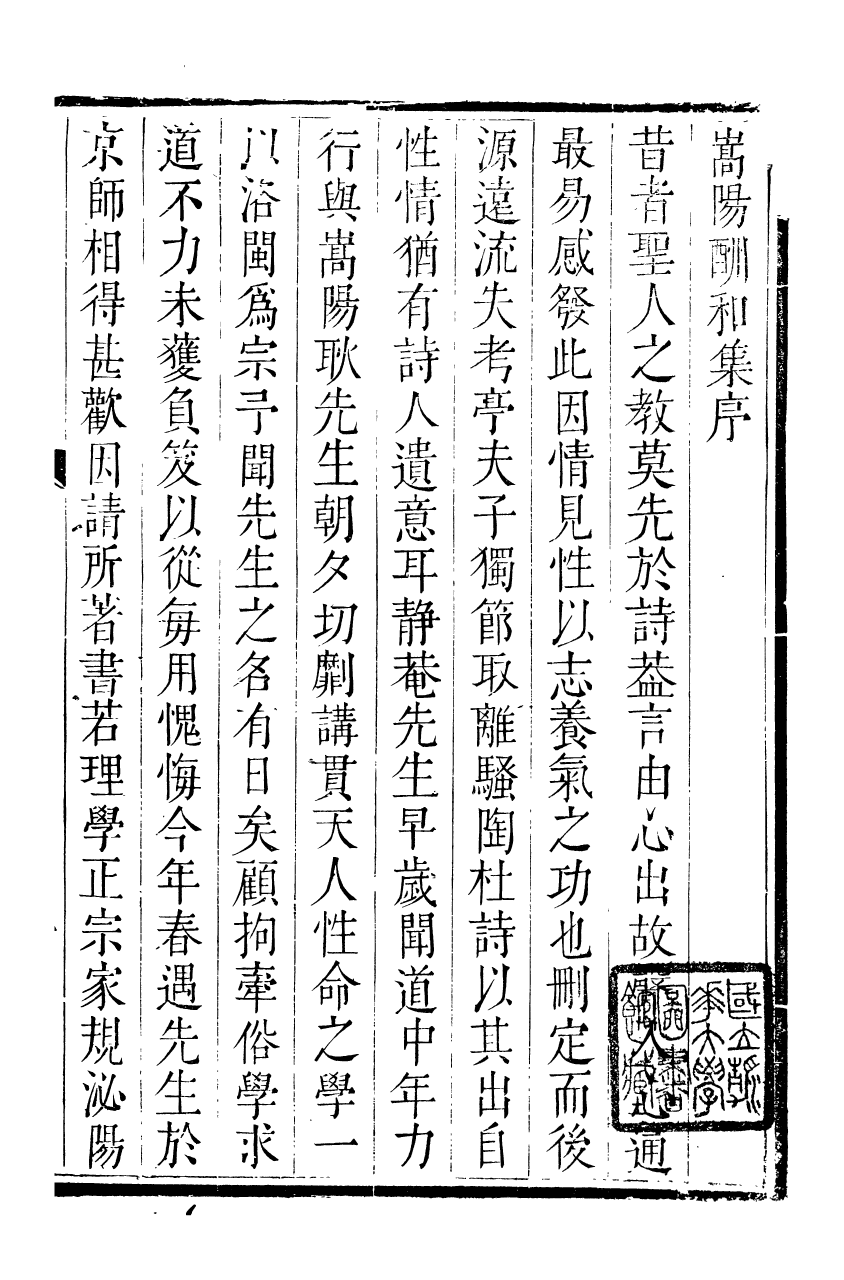 嵩陽酬和集序
昔者聖人之教莫先於詩葢言由心出故人心通
最易感發此因情見性以志養氣之功也刪定而後
源遠流失考亭夫子獨節取離騷陶杜詩以其出自
性情猶有詩人遺意耳静菴先生早歲聞道中年力
行與嵩陽耿先生朝夕切劘講貫天人性命之學一
以洛閩爲宗予聞先生之名有日矣顧拘牽俗學求
道不力未獲負笈以從每用愧悔今年春遇先生於
京師相得甚歡因請所著書若理學正宗家規泌陽
國立清
華大學
圖書
館藏